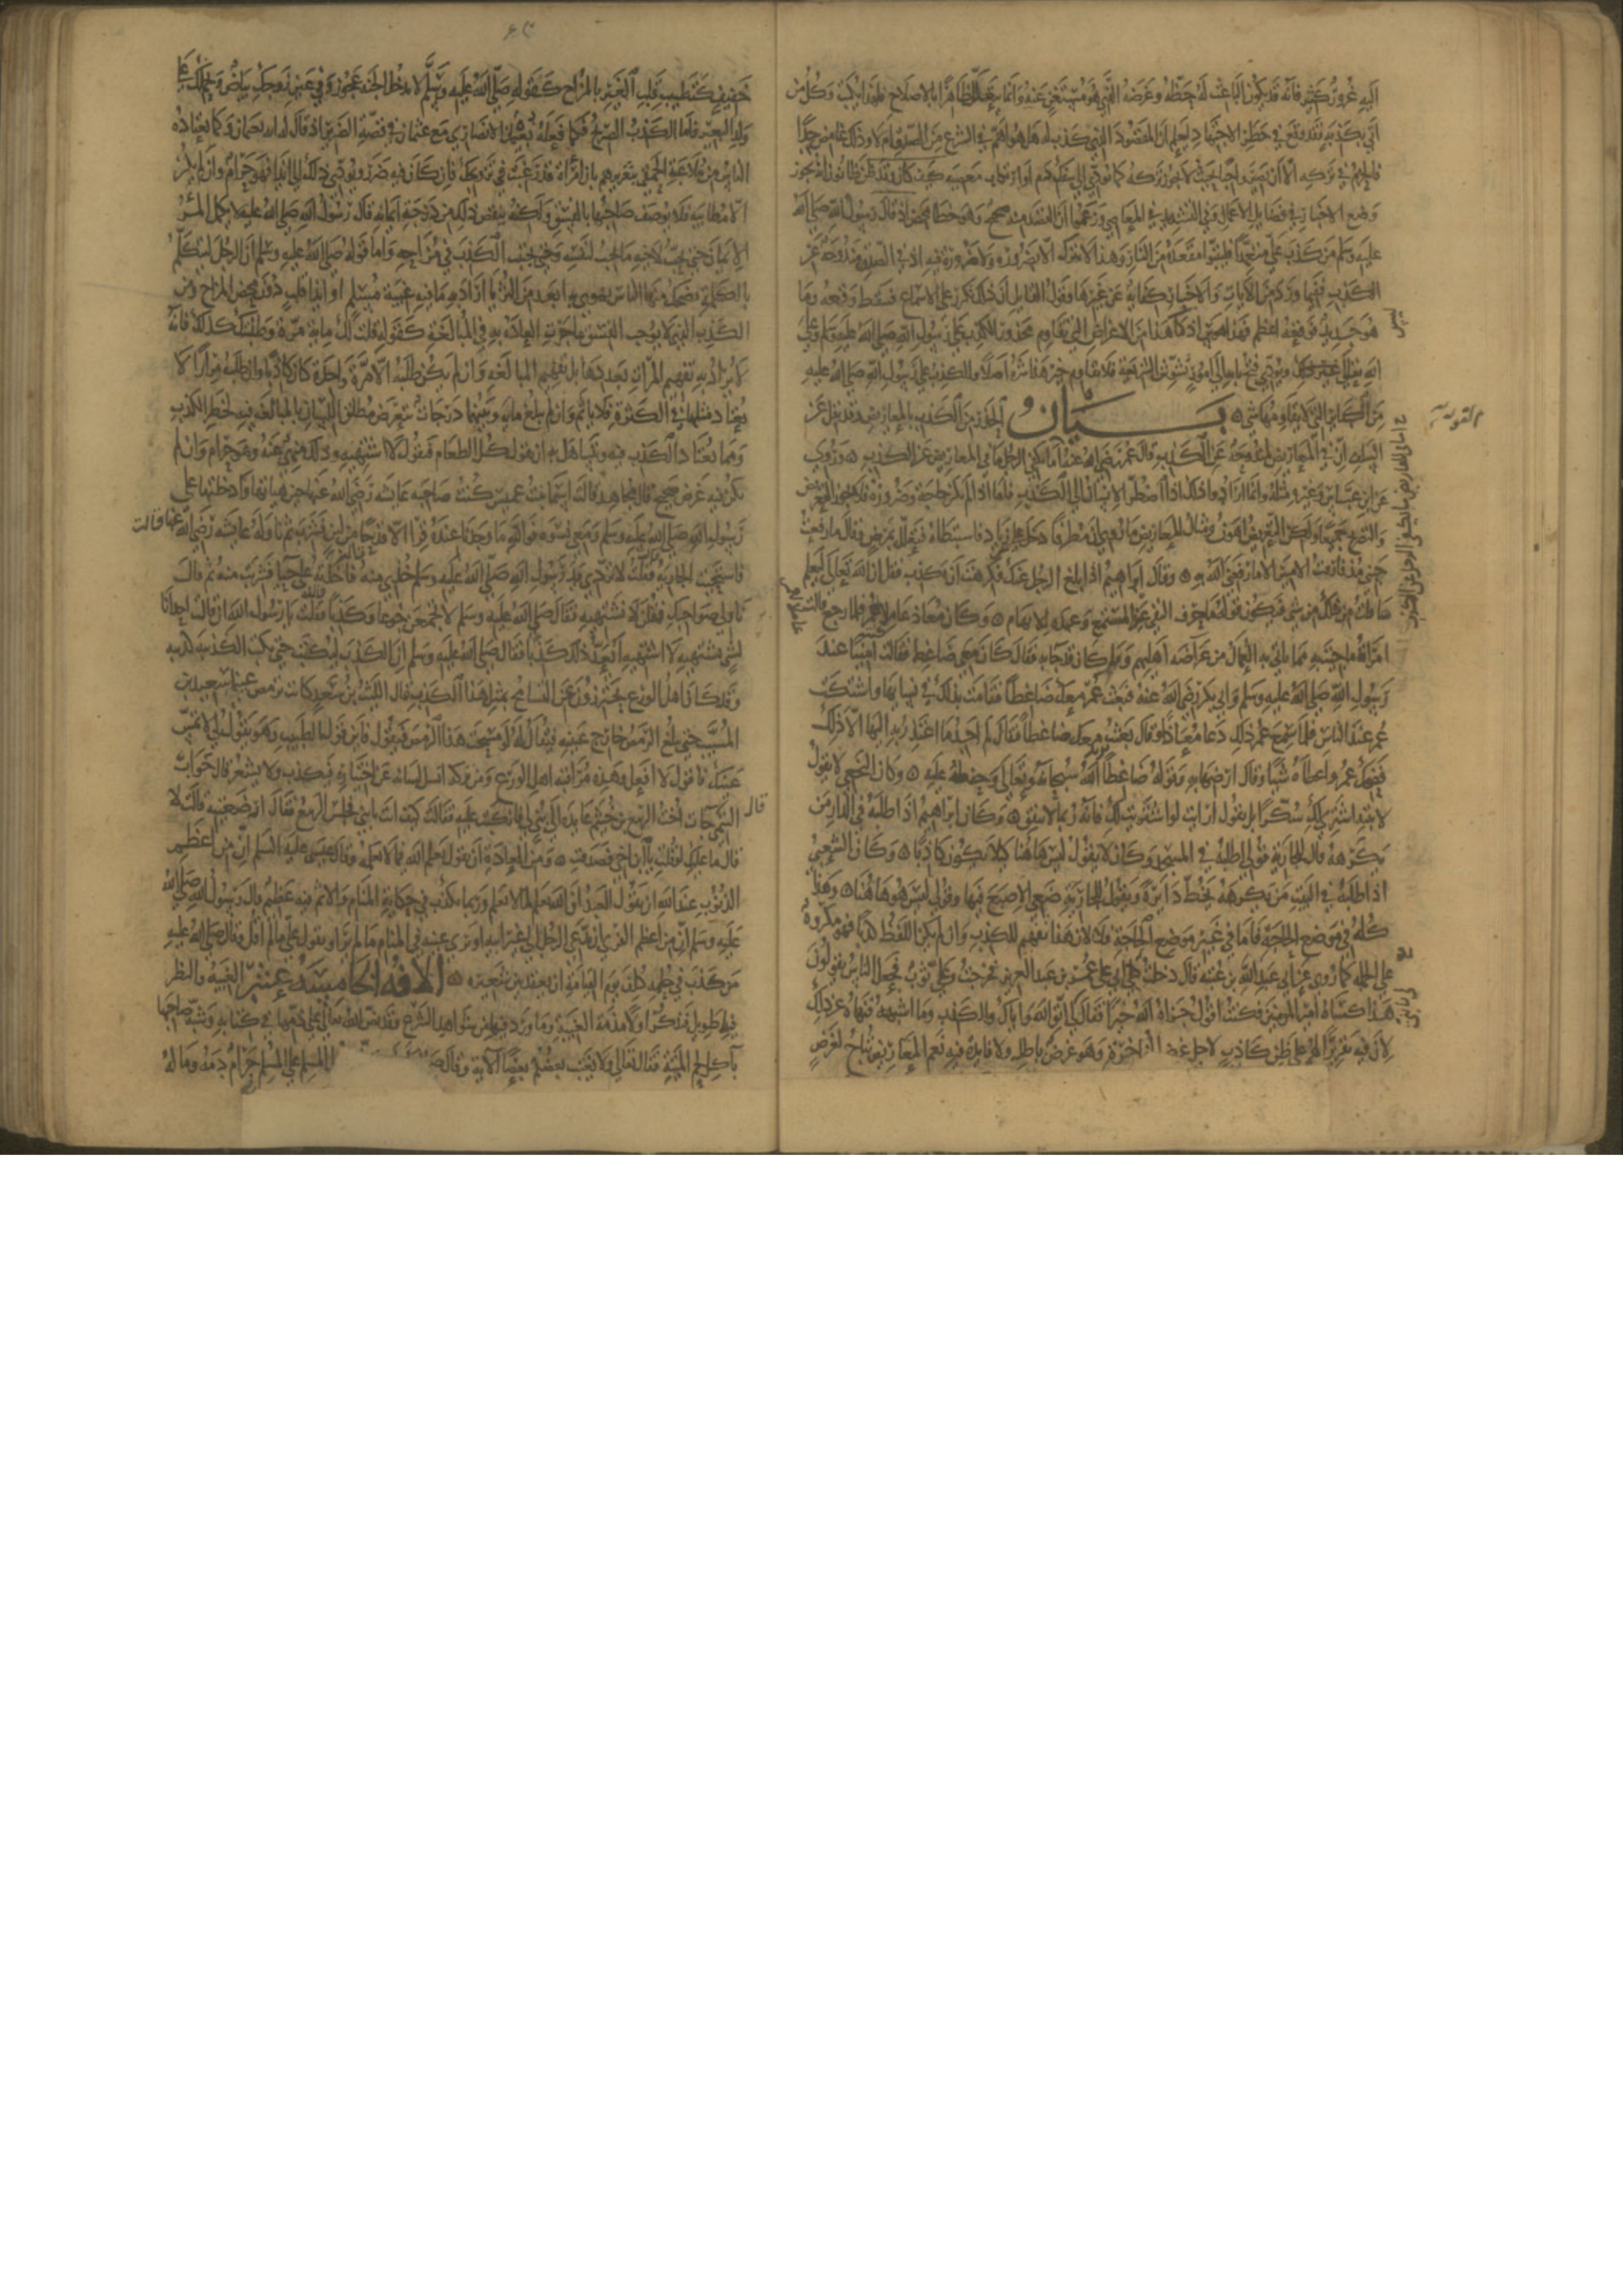 اليه غرور كثير فانه قد يكون الباعث له حظه وغرضه الذي هو مستغن عنه وانما يتعلل ظاهرا بالاصلاح فلهذا يكتب وكل من
اتي بكذبه فقد وقع في خطر الاجتهاد ليعلم ان المقصود الذي كذب له هل هو اهم في الشرع من الصدق ام لا وذلك غامض جدا
فالحزم في تركه الا ان يصير واجبا بحيث لا يجوز تركه كما يؤدي الي سفك دم او ارتكاب معصية كيف كان وقد ظن ظانون انه يجوز
وضع الاخبار في فضايل الاعمال وفي التشديد في المعاصي وزعموا ان القصد منه صحيح وهو خطا محض اذ قال رسول الله صلي الله
عليه وسلم من كذب علي متعمدا فليتبوا مقعده من النار وهذا لا يترك الا بضرورة ولا ضرورة فيه اذ في الصدق مندوحة عن
الكذب ففيما ورد من الايات والاخبار كفاية عن غيرها وقول القايل ان ذلك تكرر علي الاسماع فسقط وقعه وما
هو جديد فوقعه اعظم فهذا هوس اذ ليس هذا من الاغراض التي تقاوم محذور الكذب علي رسول الله صلي الله عليه وسلم وعلي
الله تعالي ويؤدي فتح بابه الي امور تشوش الشريعة فلا يقاوم خير هذا شره اصلا والكذب علي رسول الله صلي الله عليه
من الكباير التي لا يقاومها شي
بيان الحذر من الكذب بالمعاريض قد نقل عن
السلف ان في المعاريض لمندوحة عن الكذب وقال عمر رضي الله عنه اما يكفي الرجل ما في المعاريض عن الكذب وروي
عن ابن عباس وغيره مثله وانما ارادوا ذلك اذا اضطر الانسان الي الكذب فاما اذا لم يكن حاجة وضرورة فلا يجوز التعريض
والتصريح جميعا ولكن التعريض اهون ومثال المعاريض ما روي ان مطرفا دخل علي زياد فاستبطاه فتعلل بمرض فقال ما رفعت
جنبي مذ فارقت الامير الا ما رفعني الله به وقال ابراهيم اذا بلغ الرجل عنك شي فكرهت ان تكذب فقل ان الله تعالي ليعلم
ما قلت من ذلك من شي فيكون قوله ما حرف النفي عند المستمع وعنده للابهام وكان معاذ عاملا لعمر فلما رجع قالت
امراته ما جيت به مما ياتي به العمال من عراضة اهليهم وما كان قد جاها به فقال كان معي ضاغط فقالت امينا عند
رسول الله صلي الله عليه وسلم وابي بكر رضي الله عنه فبعث عمر معك ضاغطا فقامت بذلك في نسايها واشتكت
عمر عند الناس فلما سمع عمر ذلك دعا معاذا وقال بعثت معك ضاغطا فقال لم اجد ما اعتذر به اليها الا ذلك
فضحك عمر واعطاه شيا وقال ارضها به وقوله ضاغطا الله سبحانه وتعالي وحفظه عليه وكان النخعي لا يقول
لابنته اشتري لك سكرا بل يقول ارايت لو اشتريت لك فانه ربما لا يتفق وكان ابراهيم اذا طلبه في الدار من
يكرهه قال للجارية قولي اطلبه في المسجد وكان لا يقول ليس هاهنا كيلا يكون كاذبا وكان الشعبي
اذا طلبه في البيت من يكرهه يخط دايرة ويقول للجارية ضعي الاصبع فيها وقولي ليس هو هاهنا وهذا
كله في موضع الحاجة فاما في غير موضع الحاجة فلا لان هذا تفهيم للكذب وان لم يكن اللفظ كذبا فهو مكروه
علي الجملة كما روي عن ابي عبد الله بن عتبة قال دخلت مع ابي علي عمر بن عبد العزيز فخرجت وعلي ثوب فجعل الناس يقولون
هذا كساه امير المومنين فكنت اقول جزاه الله خيرا فقال لي اتق الله واياك والكذب وما اشبهه فنهاه عن ذلك
لان فيه تقريرا لهم علي ظن كاذب لاجل غرض المفاخرة وهو غرض باطل ولا فايدة فيه نعم المعاريض تباح لغرض
خفيف كتطييب قلب الغير بالمزاح كقوله صلي الله عليه وسلم لا يدخل الجنة عجوز وفي عين زوجك بياض ونحملك علي
ولد البعير فاما الكذب الصريح فكما فعله نعيمان الانصاري مع عثمان في قصة الضرير اذ قال له انه نعيمان وكما يعتاده
الناس من ملاعبة الحمقي بتغريرهم بان امراة قد رغبت في تزويجك فان كان فيه ضرر ويؤدي ذلك الي ايذا فهو حرام وان لم يكن
الا مطايبة فلا يوصف صاحبها بالفسق ولكنه ينقص ذلك من درجة ايمانه قال رسول الله صلي الله عليه لا يكمل للمرء
الايمان حتي يحب لاخيه ما يحب لنفسه وحتي يجتنب الكذب في مزاحه واما قوله صلي الله عليه وسلم ان الرجل ليتكلم
بالكلمة يضحك بها الناس يهوي بها ابعد من الثريا اراد به ما فيه غيبة مسلم او ايذا قلب دون محض المزاح ومن
الكذب الذي لا يوجب الفسق ما جرت العادة به في المبالغة كقوله قلت لك ماية مرة وطلبتك كذا فانه
لا يراد به تفهيم المرات بعددها بل تفهيم المبالغة وان لم يكن طلبه الا مرة واحدة كان كاذبا وان طلبه مرارا لا
يعتاد مثلها في الكثرة فلا ياثم وان لم يبلغ ماية وبينهما درجات يتعرض مطلق اللسان بالمبالغة فيه لخطر الكذب
ومما يعتاد الكذب فيه ويتساهل به ان يقول كل الطعام فيقول لا اشتهيه وذلك منهي عنه وهو حرام وان لم
يكن فيه غرض صحيح قال مجاهد قالت اسما بنت عميس كنت صاحبة عايشة رضي الله عنها حين هياتها وادخلتها علي
رسول الله صلي الله عليه وسلم ومعي نسوة فوالله ما وجدنا عنده قرا الا قدحا من لبن فشرب ثم ناوله عايشة رضي الله عنها قالت
فاستحيت الجارية فقلت لا تردي يد رسول الله صلي الله عليه وسلم خذي منه فاخذته علي حيا فشربت منه ثم قال
ناولي صواحبك فقلن لا نشتهيه فقال صلي الله عليه وسلم لا تجمعن جوعا وكذبا فقلت يا رسول الله ان قالت احدانا
لشي تشتهيه لا اشتهيه ايعد ذلك كذبا فقال صلي الله عليه وسلم ان الكذب ليكتب حتي تكتب الكذيبة كذيبة
وقد كان اهل الورع يحترزون عن التسامح بمثل هذا الكذب قال الليث بن سعد كانت ترمص عينا سعيد بن
المسيب حتي يبلغ الرمص خارج عينيه فيقال له لو مسحت هذا الرمص فيقول فاين قول الطبيب وهو يقول لي لا تمس
عينيك فاقول لا افعل وهذه مراقبة اهل الورع ومن تركه انسل لسانه عن اختياره فيكذب ولا يشعر قال خوات
التيمي جات اخت الربيع بن خثيم عايدة الي بني لي فانكبت عليه فقالت كيف انت يا بني فجلس الربيع فقال ارضعتيه قالت لا
قال ما عليك لو قلت يا ابن اخي فصدقت ومن العادة ان يقول يعلم الله فيما لا يعلمه وقال عيسي عليه السلم ان من اعظم
الذنوب عند الله ان يقول العبد ان الله يعلم لما لا يعلم وربما يكذب في حكاية المنام والاثم فيه عظيم قال رسول الله صلي الله
عليه وسلم ان من اعظم الفري ان يدعي الرجل الي غير ابيه او يري عينيه في المنام ما لم ير او يقول علي ما لم اقل وقال صلي الله عليه
من كذب في حلمه كلف يوم القيامة ان يعقد بين شعيرتين الافة الخامسة عشر الغيبة والنظر
فيها طويل فنذكر اولا مذمة الغيبة وما ورد فيها من شواهد الشرع وقد نص الله تعالي علي ذمها في كتابه وشبه صاحبها
بآكل لحم الميتة فقال تعالي ولا يغتب بعضكم بعضا الاية وقال المسلم علي المسلم حرام دمه وماله